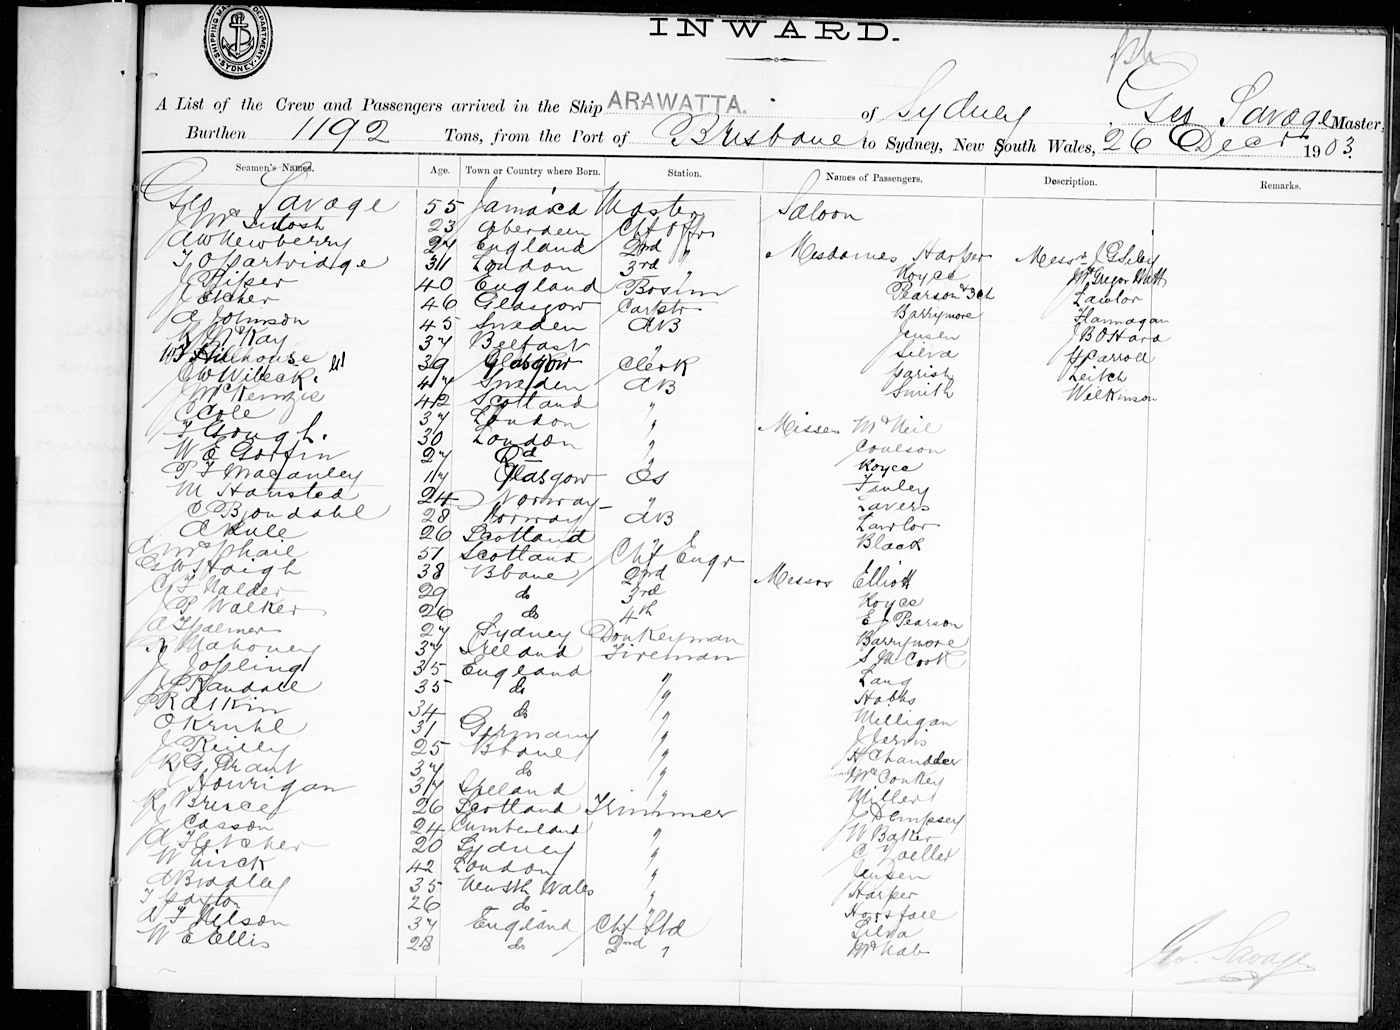 SHIPPING MASTER'S DEPARTMENT SYDNEY
INWARD.
A List of the Crew and Passengers arrived in the Ship ARAWATTA. of Sydney Geo Savage Master,
Burthen 1192 Tons, from the Port of Brisbane to Sydney, New South Wales, 26 Decr 1903.
Seamen's Names. Age. Town or Country where Born. Station. Names of Passengers. Description. Remarks.
Geo Savage 55 Jamaica Master Saloon
J McIntosh 23 Aberdeen Chf Offr
A W Newberry 27 England 2nd " Mesdames Harper Messrs J G Siley
T O Partridge 31 London 3rd " Royce McGregor Watt
J Piper 40 England Bosun Pearson & 3 ch Lawlor
J Etcher 46 Glasgow Carptr Barrymore Flannagan
A Johnson 45 Sweden AB Jensen J B O'Hara
McKay 37 Belfast " Silva Carroll
Hillhouse 39 Glasgow Clerk Garish Leitch
C W Wibeck. 47 Sweden AB Smith Wilkinson
J McKenzie 42 Scotland "
C Cole 37 London " Misses McNeil
T Gough. 30 London " Coulson
W E Goffin 27 Do " Royce
P F Maganley 17 Glasgow OS Finley
M Hansted 24 Norway " Lavers
C Bjondahl 28 Norway AB Lawlor
A Kule 26 Scotland " Black
A McPhail 51 Scotland Chf Engr
G W Haigh 38 Bbane 2nd Messrs Elliott
C F Nalder 29 do 3rd Royce
J P Walker 26 do 4th E J Pearson
A Palmer 27 Sydney Donkeyman Barrymore
R Mahoney 37 Ireland Fireman S M Cook
J Jopling 35 England " Lang
J Randall 35 do " Hobbs
P Ratkin 34 do " Milligan
O Kruhl 31 Germany " J Jervis
J Reilly 25 Bbane " H Chandler
R G Grant 37 do " McConkey
J Hourigan 37 Ireland " Miller
R Bruce 26 Scotland Trimmer J Dempsey
J Casson 24 Cumberland " W Baker
A Fletcher 20 Sydney " C Zoeller
W Luck 42 London " Jensen
A Bradley 35 New Sth Wales " Harper
T Saxton 26 do " Horsfall
A F Nelson 37 England Chf Std Silva
W E Ellis 28 do 2nd " McNab
Geo. Savage